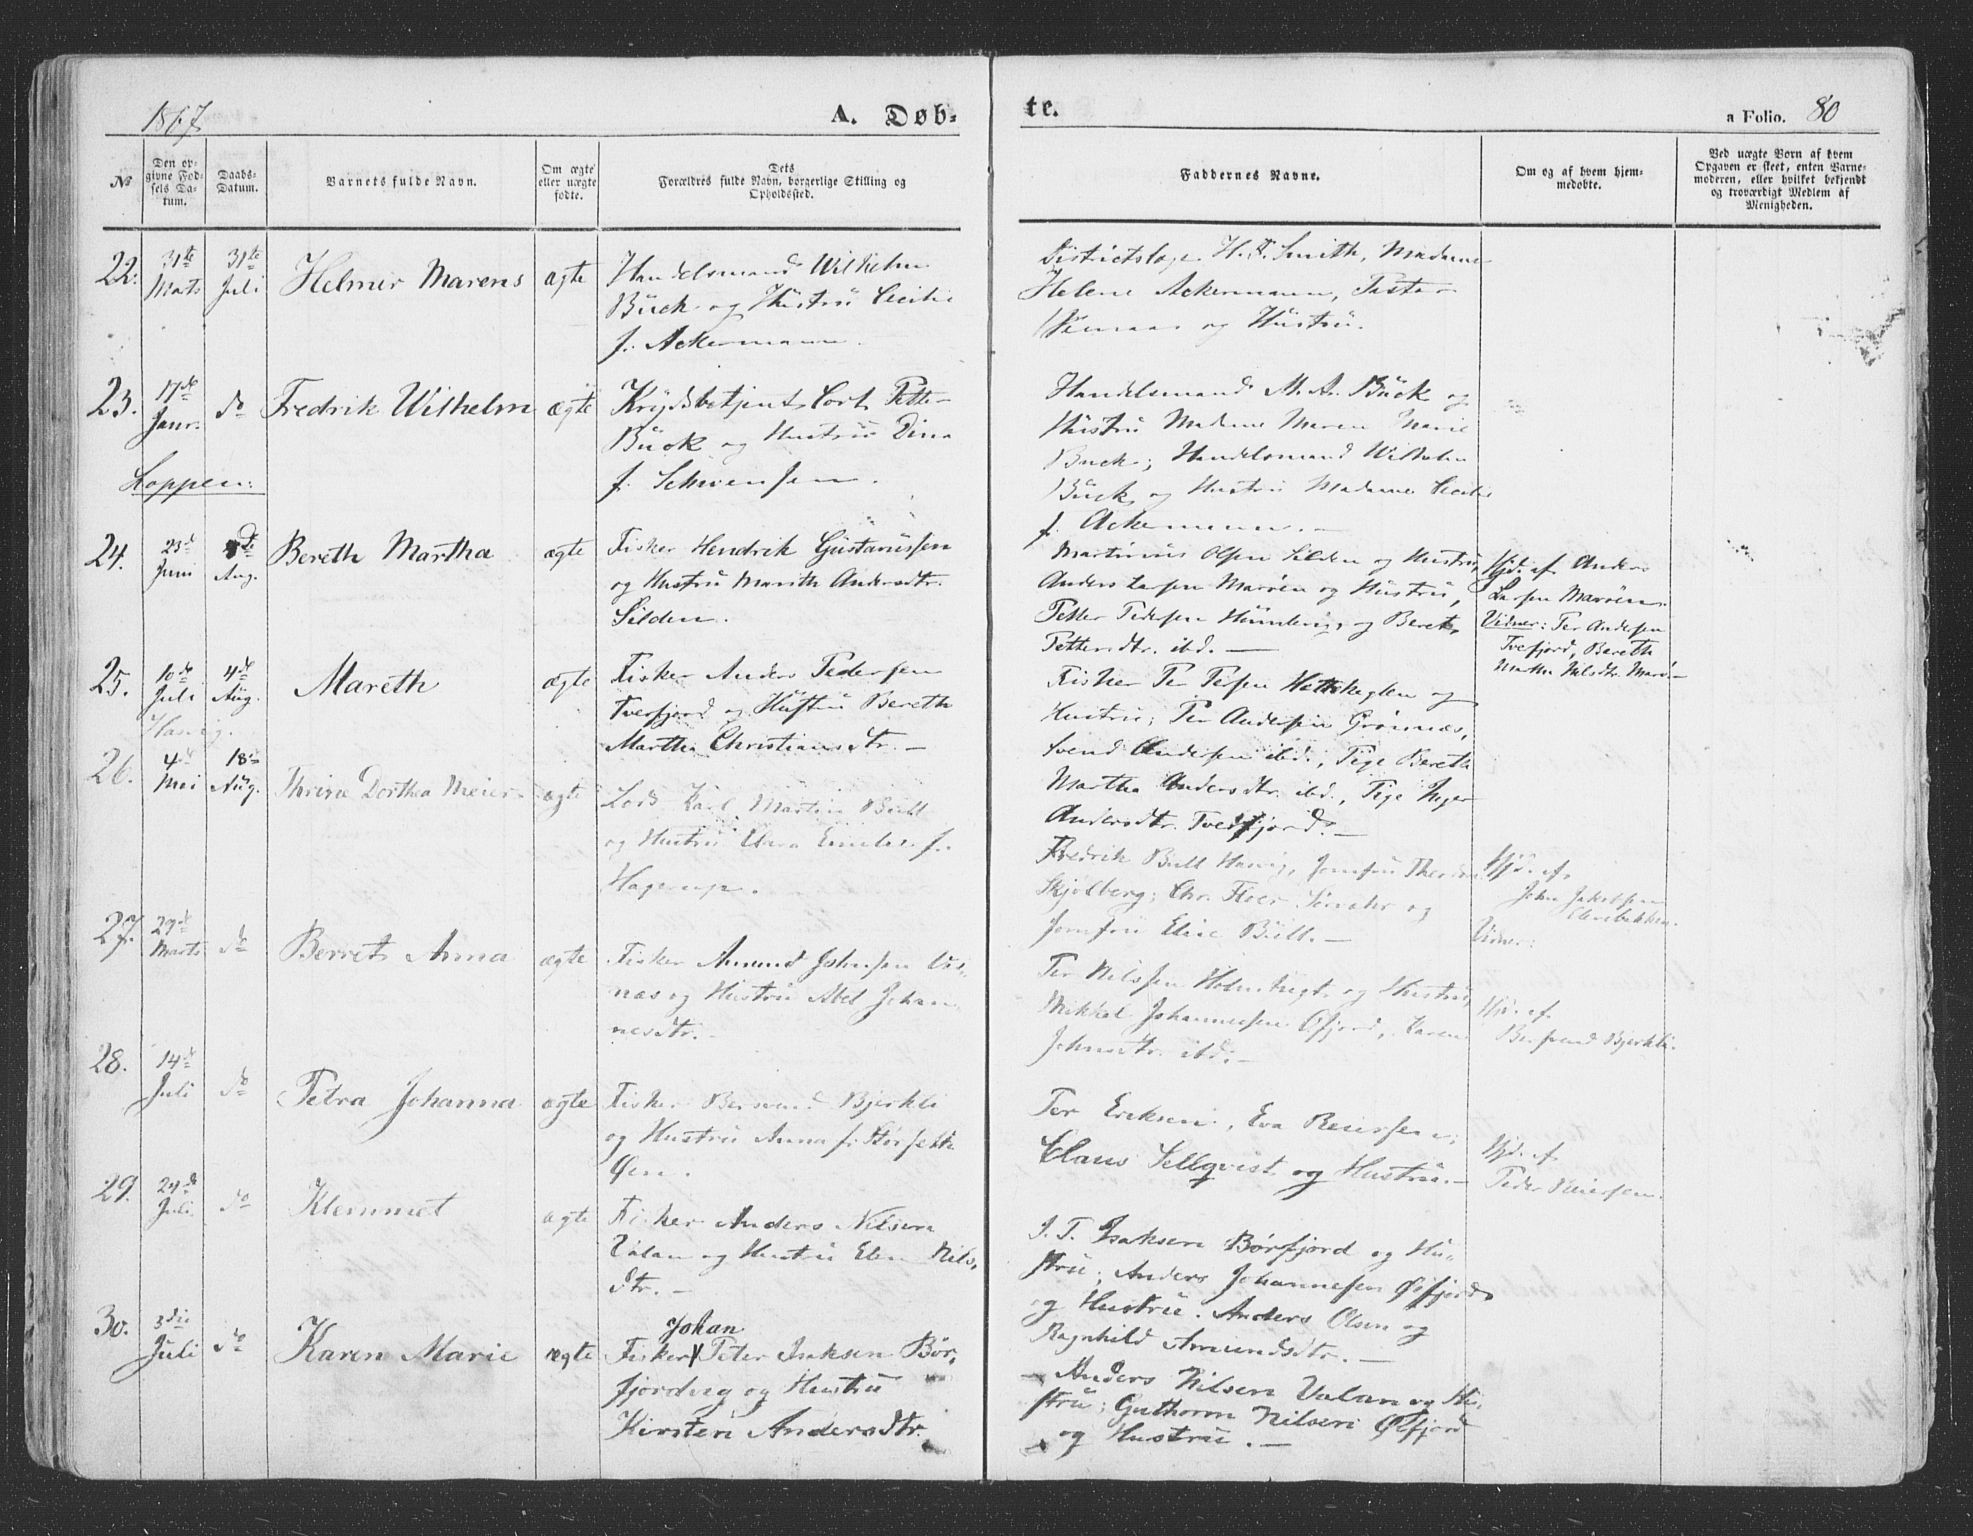 1867
A. Døb-
te.
a Folio. 80
No
Den op-
givne Fød-
sels Da-
tum.
Daabs-
Datum.
Barnets fulde Navn.
Om ægte
eller uægte
fødte.
Dets
Forældres fulde Navn, borgerlige Stilling og
Opholdssted.
Faddernes Navne.
Om og af hvem hjem-
medøbte.
Ved uægte Børn af hvem
Opgaven er skeet, enten Barne-
moderen, eller hvilket bekjendt
og troværdigt Medlem af
Menigheden.
22. 31te Marts 31te Juli Helmer Marens ægte
Handelsmand Wilhelm
Buck og Hustru Cecilie
f. Ackermann.
Districtslæge Smith, Madame
Helene Ackermann,
og Hustru.
23. 17de Janr. do Fredrik Wilhelm ægte
Krydsbetjent Cort Petter
Buck og Hustru Dina
f. Schwensen.
Handelsmand M. A. Buck og
Hustru Madame Maren Marie
Buck; Handelsmand Wilhelm
Buck og Hustru Madame Cecilie
f. Ackermann. –
Loppen:
24. 23d Juni Aug. Bereth Martha ægte
Fisker Hendrik Gustavussen
og Hustru Marith Andersdtr.
Silden.
Martinus Olsen Silden og Hustru,
Anders Larsen Marøen og Hustru,
Petter Pedersen og Beret
Pettersdtr. ibd. –
Hjd. af Anders
Larsen Marøen.
Vidner: Per Andersen
Tverfjord, Bereth
Martha Nilsdtr. Marø–
25. 10de Juli 4de Aug. Mareth ægte
Fisker Anders Pedersen
Tverfjord og Hustru Bereth
Martha Christiansdtr. –
Fisker Per og
Hustru; Per Andersen Grønnæs,
Svend Andersen ibd., Pige Bereth
Martha Andersdtr. ibd., Pige Inger
Andersdtr. Tverfjord. –
Hasvig.
26. 4de Mei 18de Aug. Thrine Dorthea Meier ægte
Lods Karl Martin Bull
og Hustru f.
Hagerup.
Fredrik Bull Hasvig, Jomfru
Skjølberg; Chr. og
Jomfru Elise Bull. –
Hjd. af
John Jakobsen
Vidner:
27. 29de Marts do Berret Anna ægte
Fisker Amund Johnsen
næs og Hustru Abel Johan-
nesdtr. –
Per Nilssen og Hustru,
Mikkel Johannesen Øfjord, Karen
Johnsdtr. ibd. –
Hjd. af
Bernsend Bjerkli.
28. 14de Juli do Petra Johanna ægte
Fisker Bernsend Bjerkli
og Hustru Anna f.
Øen.
Per Eriksen, Eva Reiersen;
Claus Sellqvist og Hustru. –
Hjd. af
Peder Reiersen.
29. 24de Juli do Klemmet ægte
Fisker Anders Nilsen
Valan og Hustru Elen Nils-
dtr. –
J. P. Isaksen Børfjord og Hu-
stru; Anders Johannesen Øfjord
og Hustru. Anders Olsen og
Ragnhild Amundsdtr. –
30. 3die Juli do Karen Marie ægte
Johan
Fisker Peter Isaksen Bør-
fjordveg og Hustru
Kirsten Andersdtr.
Anders Nilsen Valan og Hu-
stru; Guthorm Nilsen Øfjord
og Hustru. –